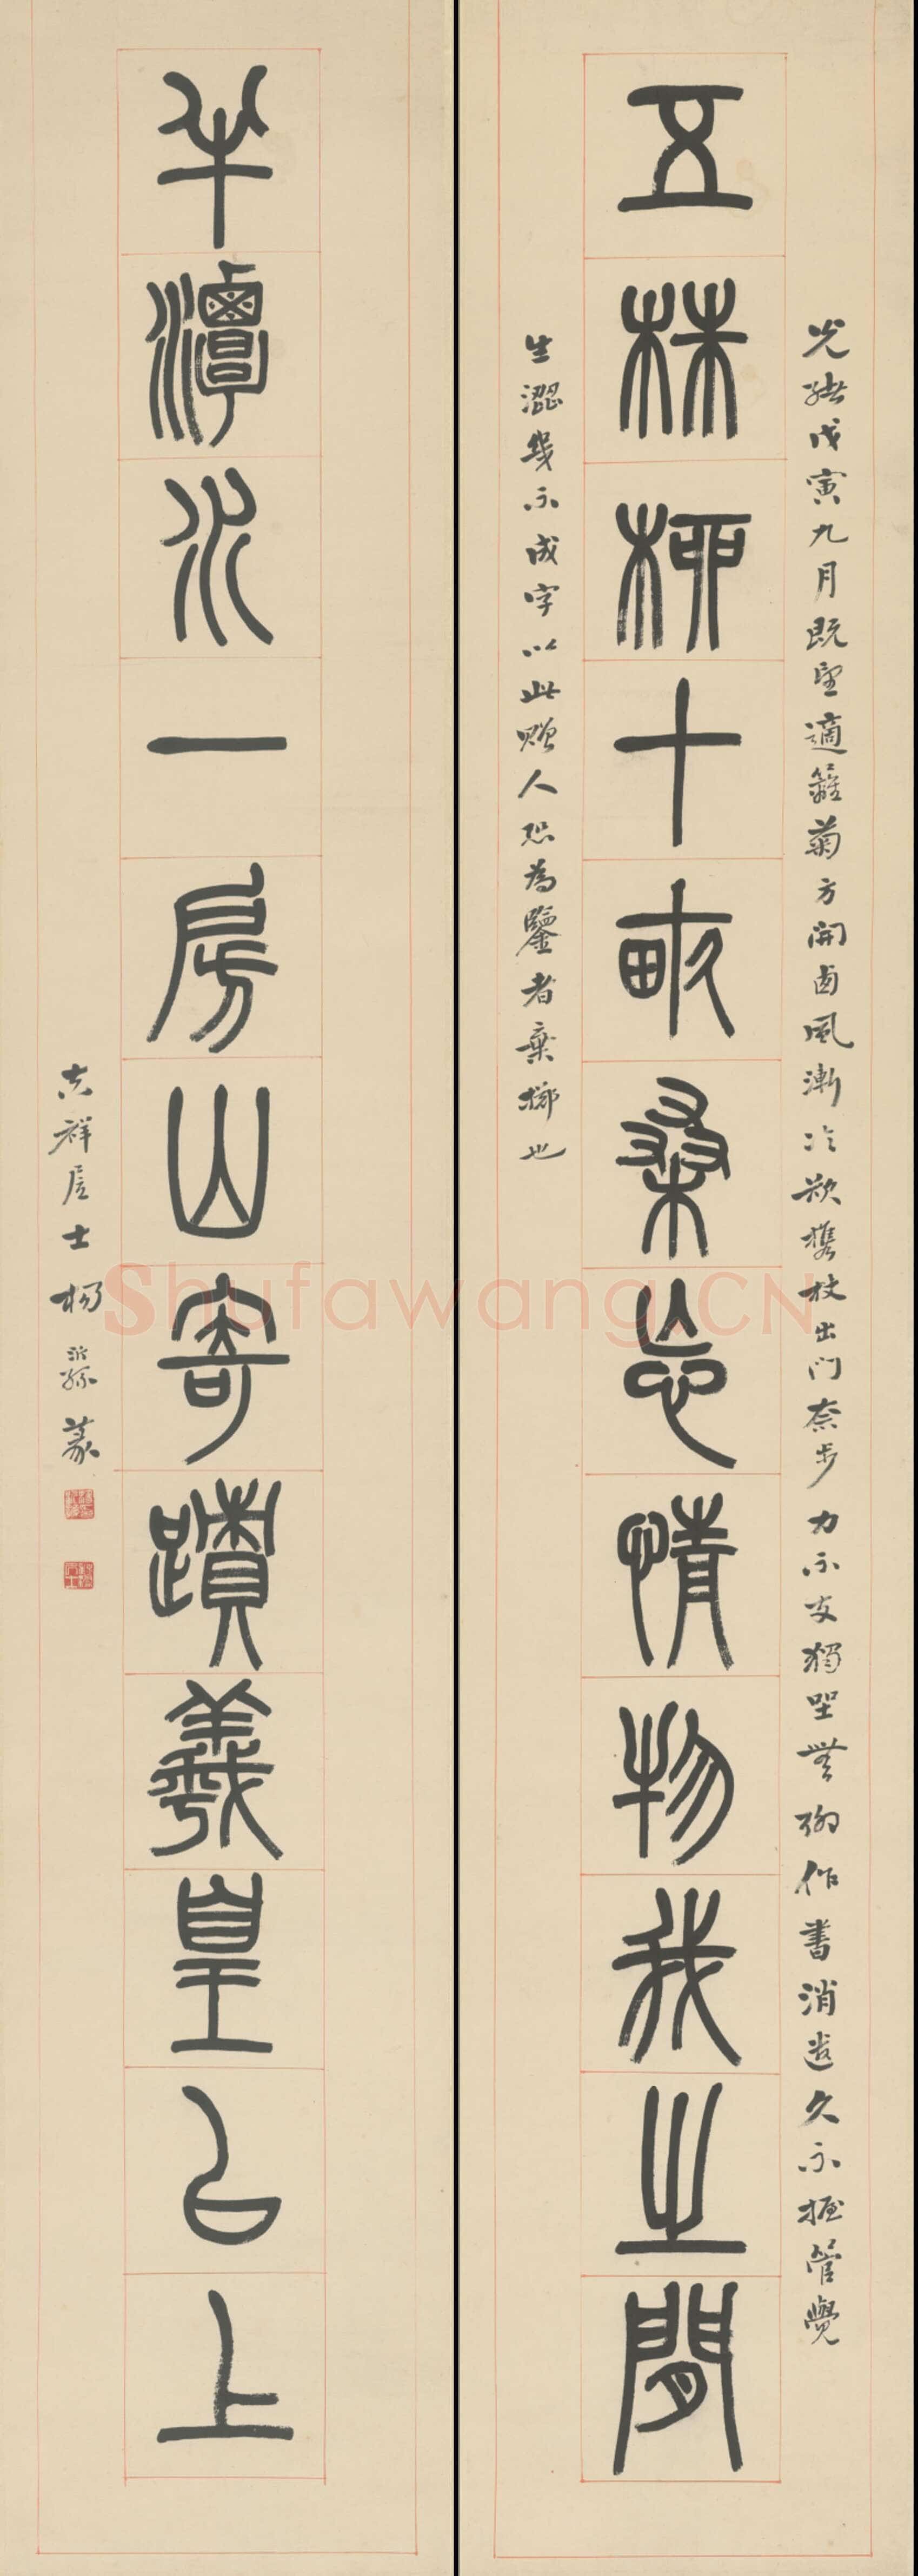 光緒戊寅九月既望適籬菊方開西風漸冷欲攜杖出門奈步力不支獨坐無聊作書消遣久不握管覺
五株柳十畝桑忘情物我之間
生澀幾不成字以此贈人恐為鑒者棄擲也
半潭水一房山寄蹟羲皇以上
吉祥居士楊沂孫篆
Shufawang.CN